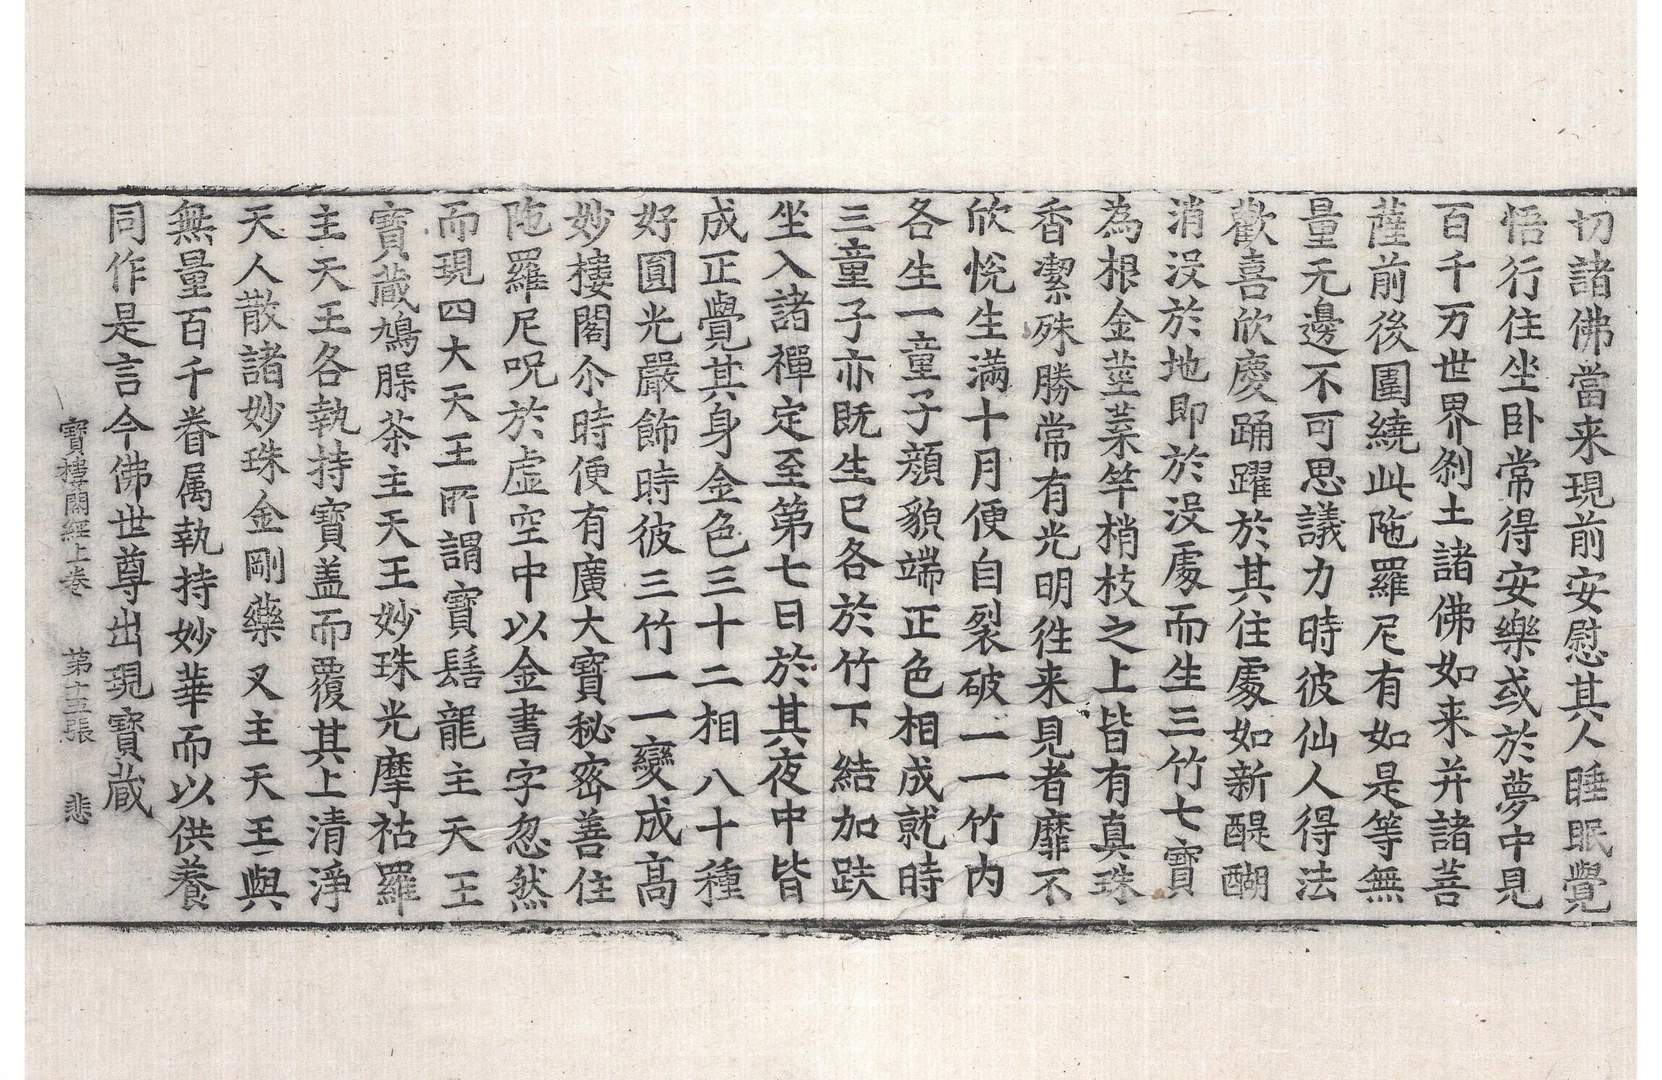 切諸佛當来現前安慰其人睡眠覺
悟行住坐卧常得安樂或於夢中見
百千万世界刹土諸佛如来并諸菩
薩前後圍繞此陁羅尼有如是等無
量无邊不可思議力時彼仙人得法
歡喜欣慶踊躍於其住處如新醍醐
消没於地即於没處而生三竹七寶
為根金莖葉竿梢枝之上皆有真珠
香潔殊勝常有光明徃来見者靡不
欣恱生滿十月便自裂破一一竹内
各生一童子顔貌端正色相成就時
三童子亦既生已各於竹下結加趺
坐入諸禪定至第七日於其夜中皆
成正覺其身金色三十二相八十種
好圓光嚴飾時彼三竹一一變成高
妙樓閣尒時便有廣大寶秘密善住
陁羅尼呪於虚空中以金書字忽然
而現四大天王所謂寶髻龍主天王
寶藏鳩䐗茶主天王妙珠光摩祜羅
主天王各執持寶盖而覆其上清淨
天人散諸妙珠金剛藥叉主天王與
無量百千眷属執持妙華而以供養
同作是言今佛世尊出現寶藏
寶樓閣經上卷 第十五張 悲